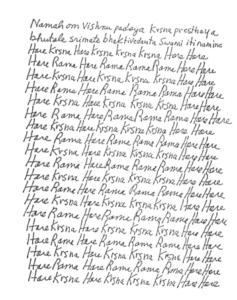 Namah om Vishnu padaya Krsna presthaya
bhutale srimate bhaktivedanta Swami iti namine
Hare Krsna Hare Krsna Krsna Krsna Hare Hare
Hare Rama Hare Rama Rama Rama Hare Hare
Hare Krsna Hare Krsna Krsna Krsna Hare Hare
Hare Rama Hare Rama Rama Rama Hare Hare
Hare Krsna Hare Krsna Krsna Krsna Hare Hare
Hare Rama Hare Rama Rama Rama Hare Hare
Hare Krsna Hare Krsna Krsna Krsna Hare Hare
Hare Rama Hare Rama Rama Rama Hare Hare
Hare Krsna Hare Krsna Krsna Krsna Hare Hare
Hare Rama Hare Rama Rama Rama Hare Hare
Hare Krsna Hare Krsna Krsna Krsna Hare Hare
Hare Rama Hare Rama Rama Rama Hare Hare
Hare Krsna Hare Krsna Krsna Krsna Hare Hare
Hare Rama Hare Rama Rama Rama Hare Hare
Hare Krsna Hare Krsna Krsna Krsna Hare Hare
Hare Rama Hare Rama Rama Rama Hare Hare
Hare Krsna Hare Krsna Krsna Krsna Hare Hare
Hare Rama Hare Rama Rama Rama Hare Hare
Hare Krsna Hare Krsna Krsna Krsna Hare Hare